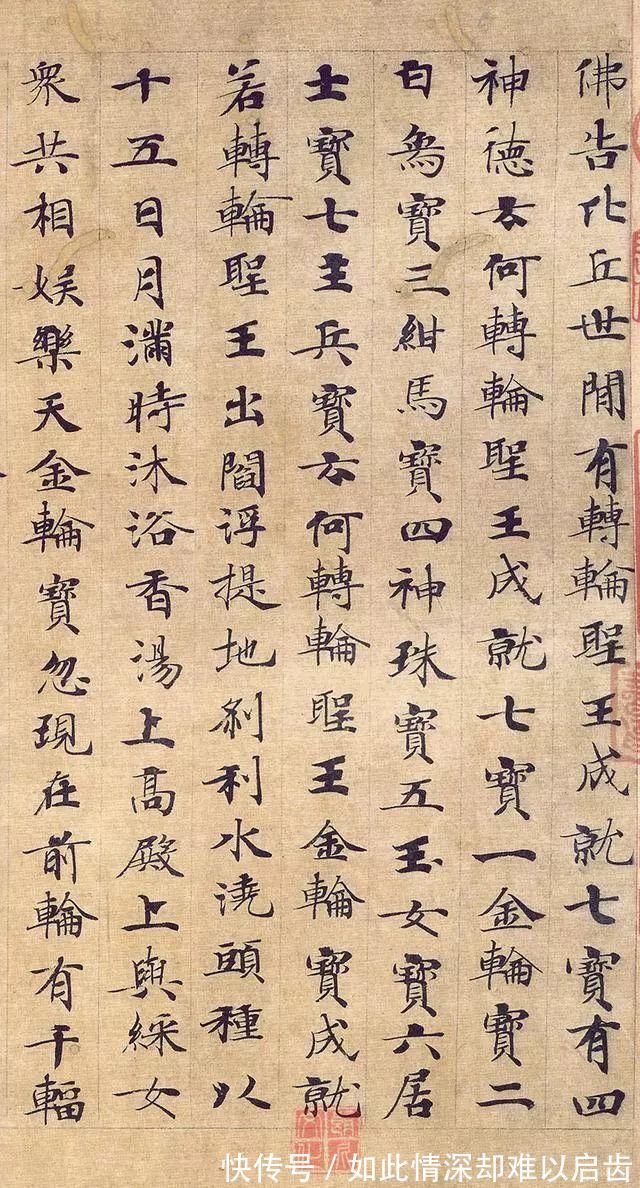 佛告比丘世間有轉輪聖王成就七寶有四
神德云何轉輪聖王成就七寶一金輪寶二
白象寶三紺馬寶四神珠寶五玉女寶六居
士寶七主兵寶云何轉輪聖王金輪寶成就
若轉輪聖王出閻浮提地剎利水澆頭種以
十五日月滿時沐浴香湯上高殿上與婇女
眾共相娛樂天金輪寶忽現在前輪有千輻
快传号/如此情深却难以启齿